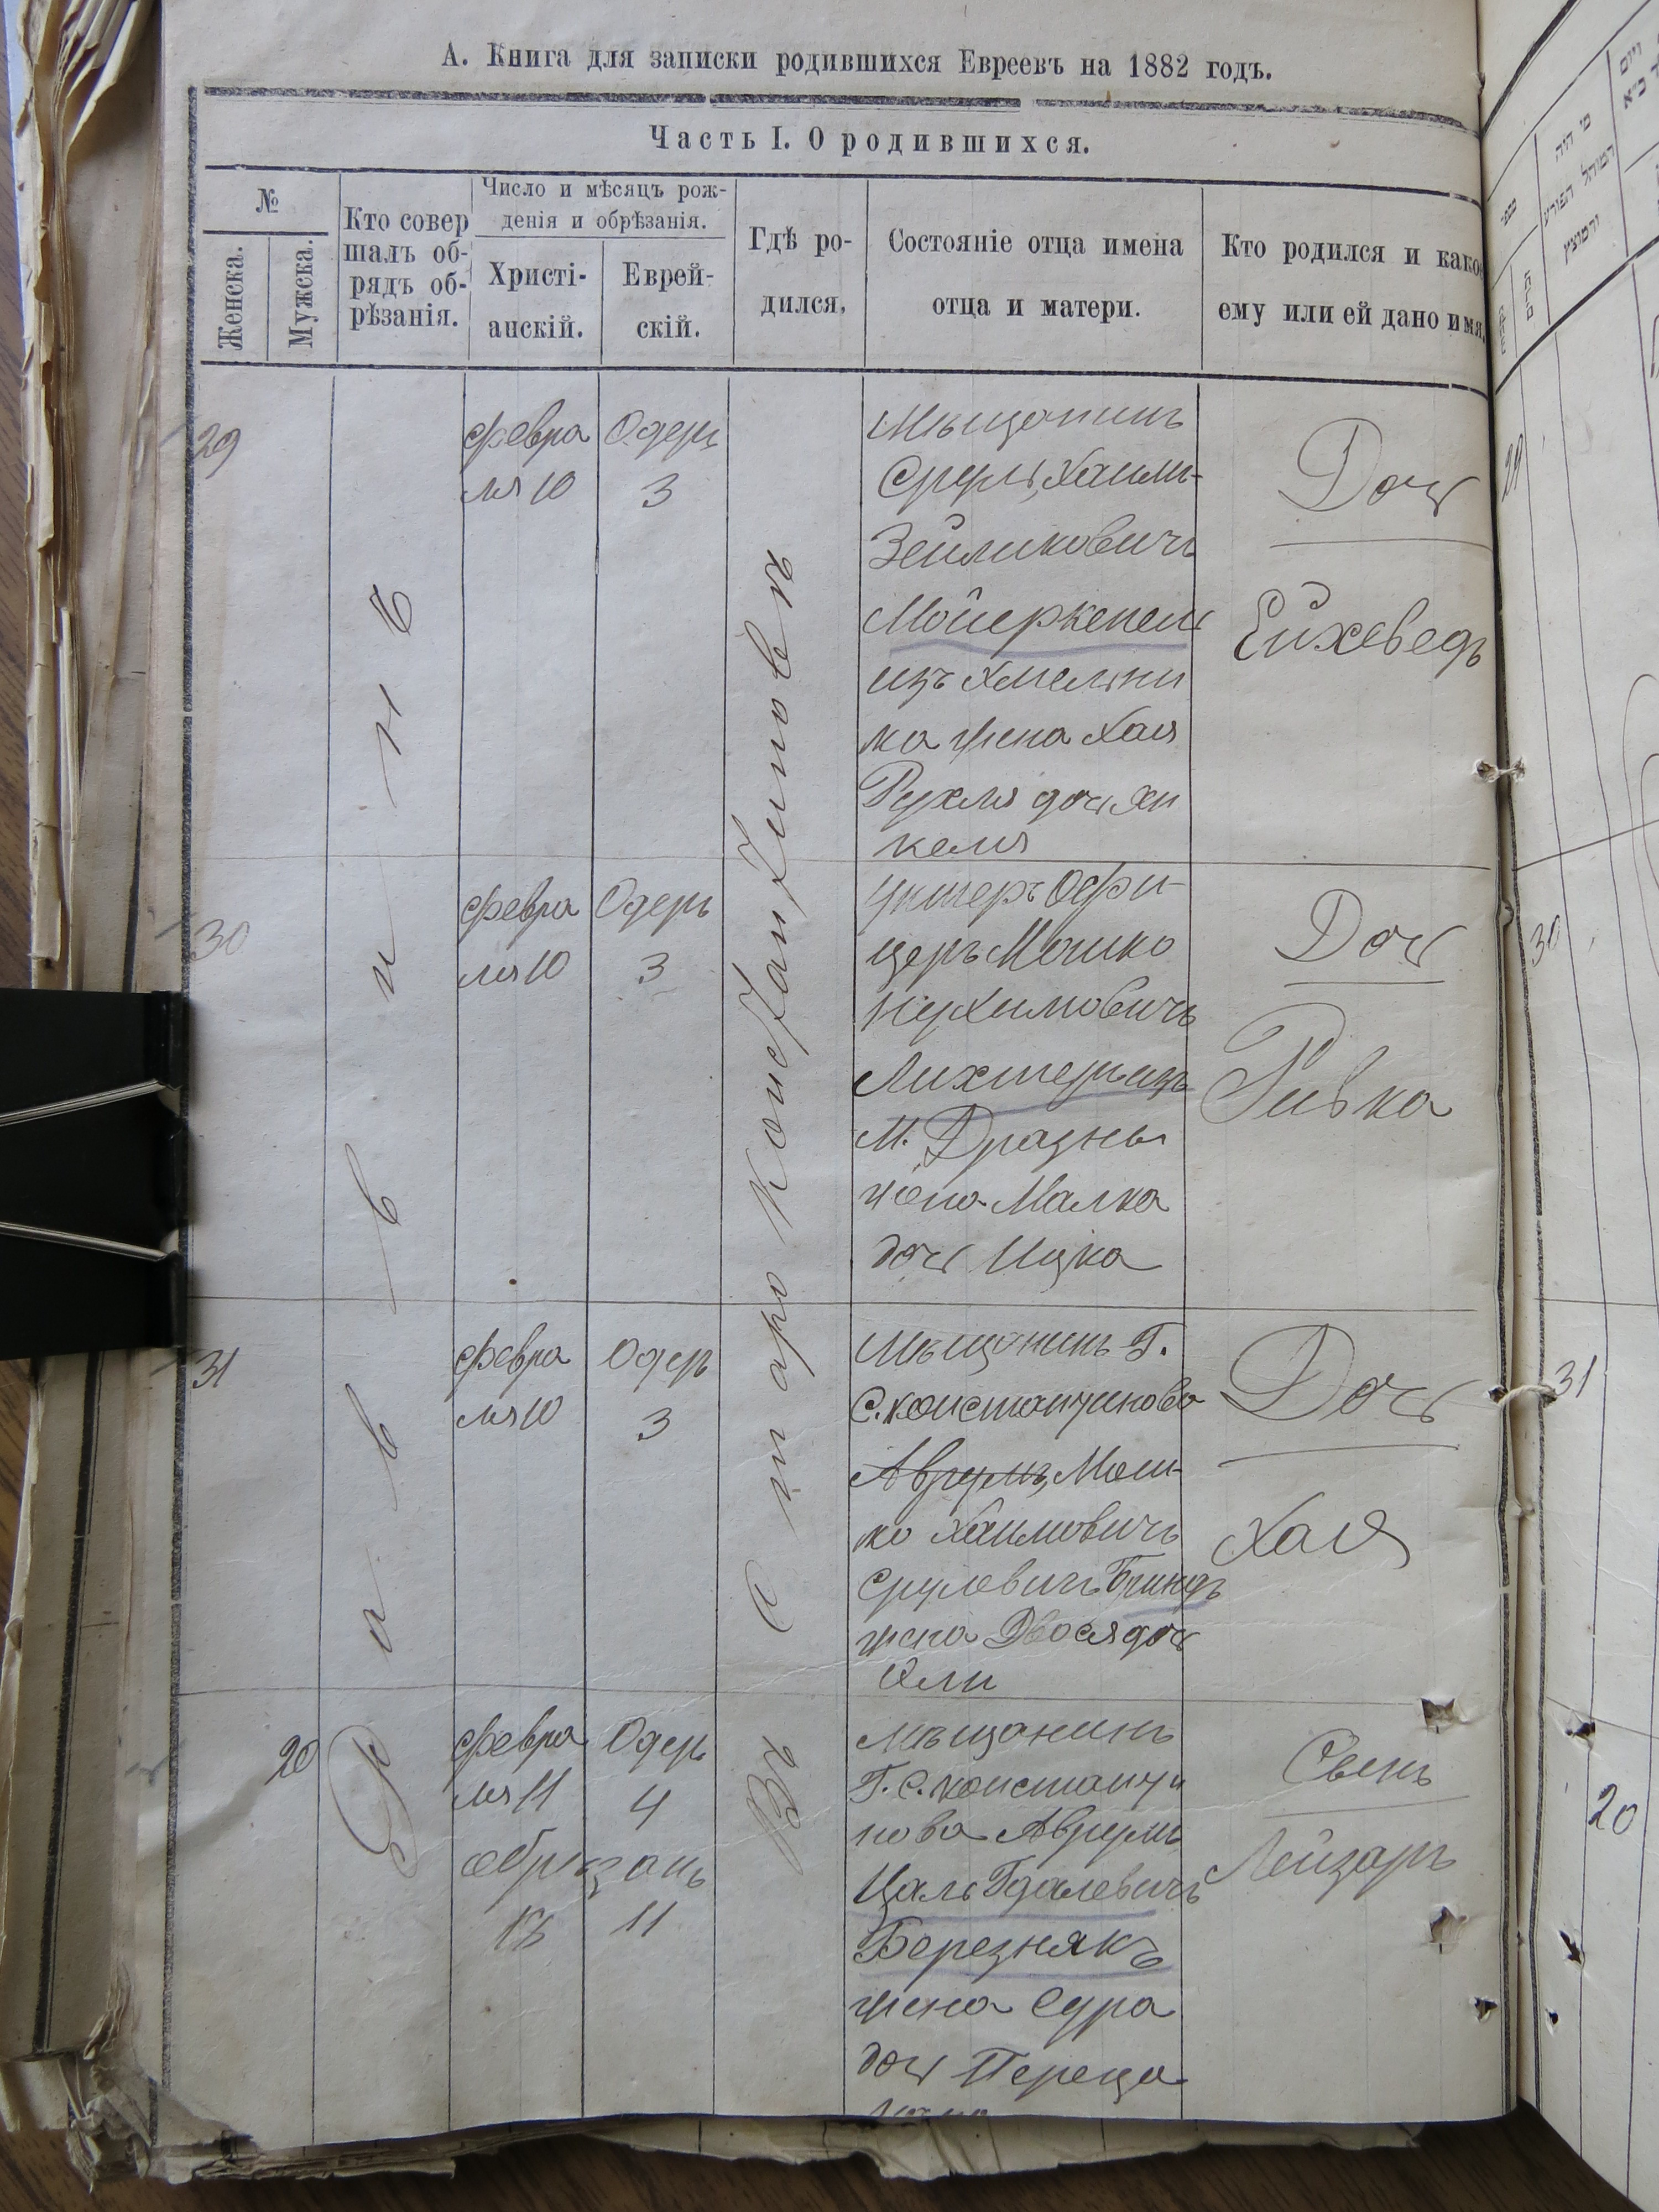 А. Книга для записки родившихся Евреевъ на 1882 годъ.
Часть I. О родившихся.
№
Женска.
Мужска.
Кто совер
шалъ об-
рядъ об-
рѣзанія.
Число и мѣсяцъ рож-
денія и обрѣзанія.
Христі-
анскій.
Еврей-
скій.
Гдѣ ро-
дился,
Состояніе отца имена
отца и матери.
Кто родился и како
ему или ей дано имя.
Раввинъ
Въ Старо Константиновѣ
29
Февра
ля 10
Одеръ
3
Мѣщанинъ
Сруль Хаимъ-
Зейликовичъ
Мойеркепель
изъ Хмельни
ка жена Хая
Рухля дочь Ян
келя
Дочь
Ейхеведъ
29
30
Февра
ля 10
Одеръ
3
Унтеръ Офи-
церъ Мошко
Нухимовичъ
Лихтеръ изъ
М.
жена Малка
дочь Ицка
Дочь
Ривка
30
31
Февра
ля 10
Одеръ
3
Мѣщанинъ Г.
С. Константинова
Аврумъ Мош-
ко Хаимовичъ
Сруловичъ
жена Двося дочь
Дочь
Хая
31
20
Февра
ля 11
Одеръ
4
обрѣзанъ
18 11
Мѣщанинъ
Г. С. Константи
нова Аврумъ
Цаль Гдалевичъ
Березнякъ
жена Сура
дочь Переца
Сынъ
Лейзаръ
20